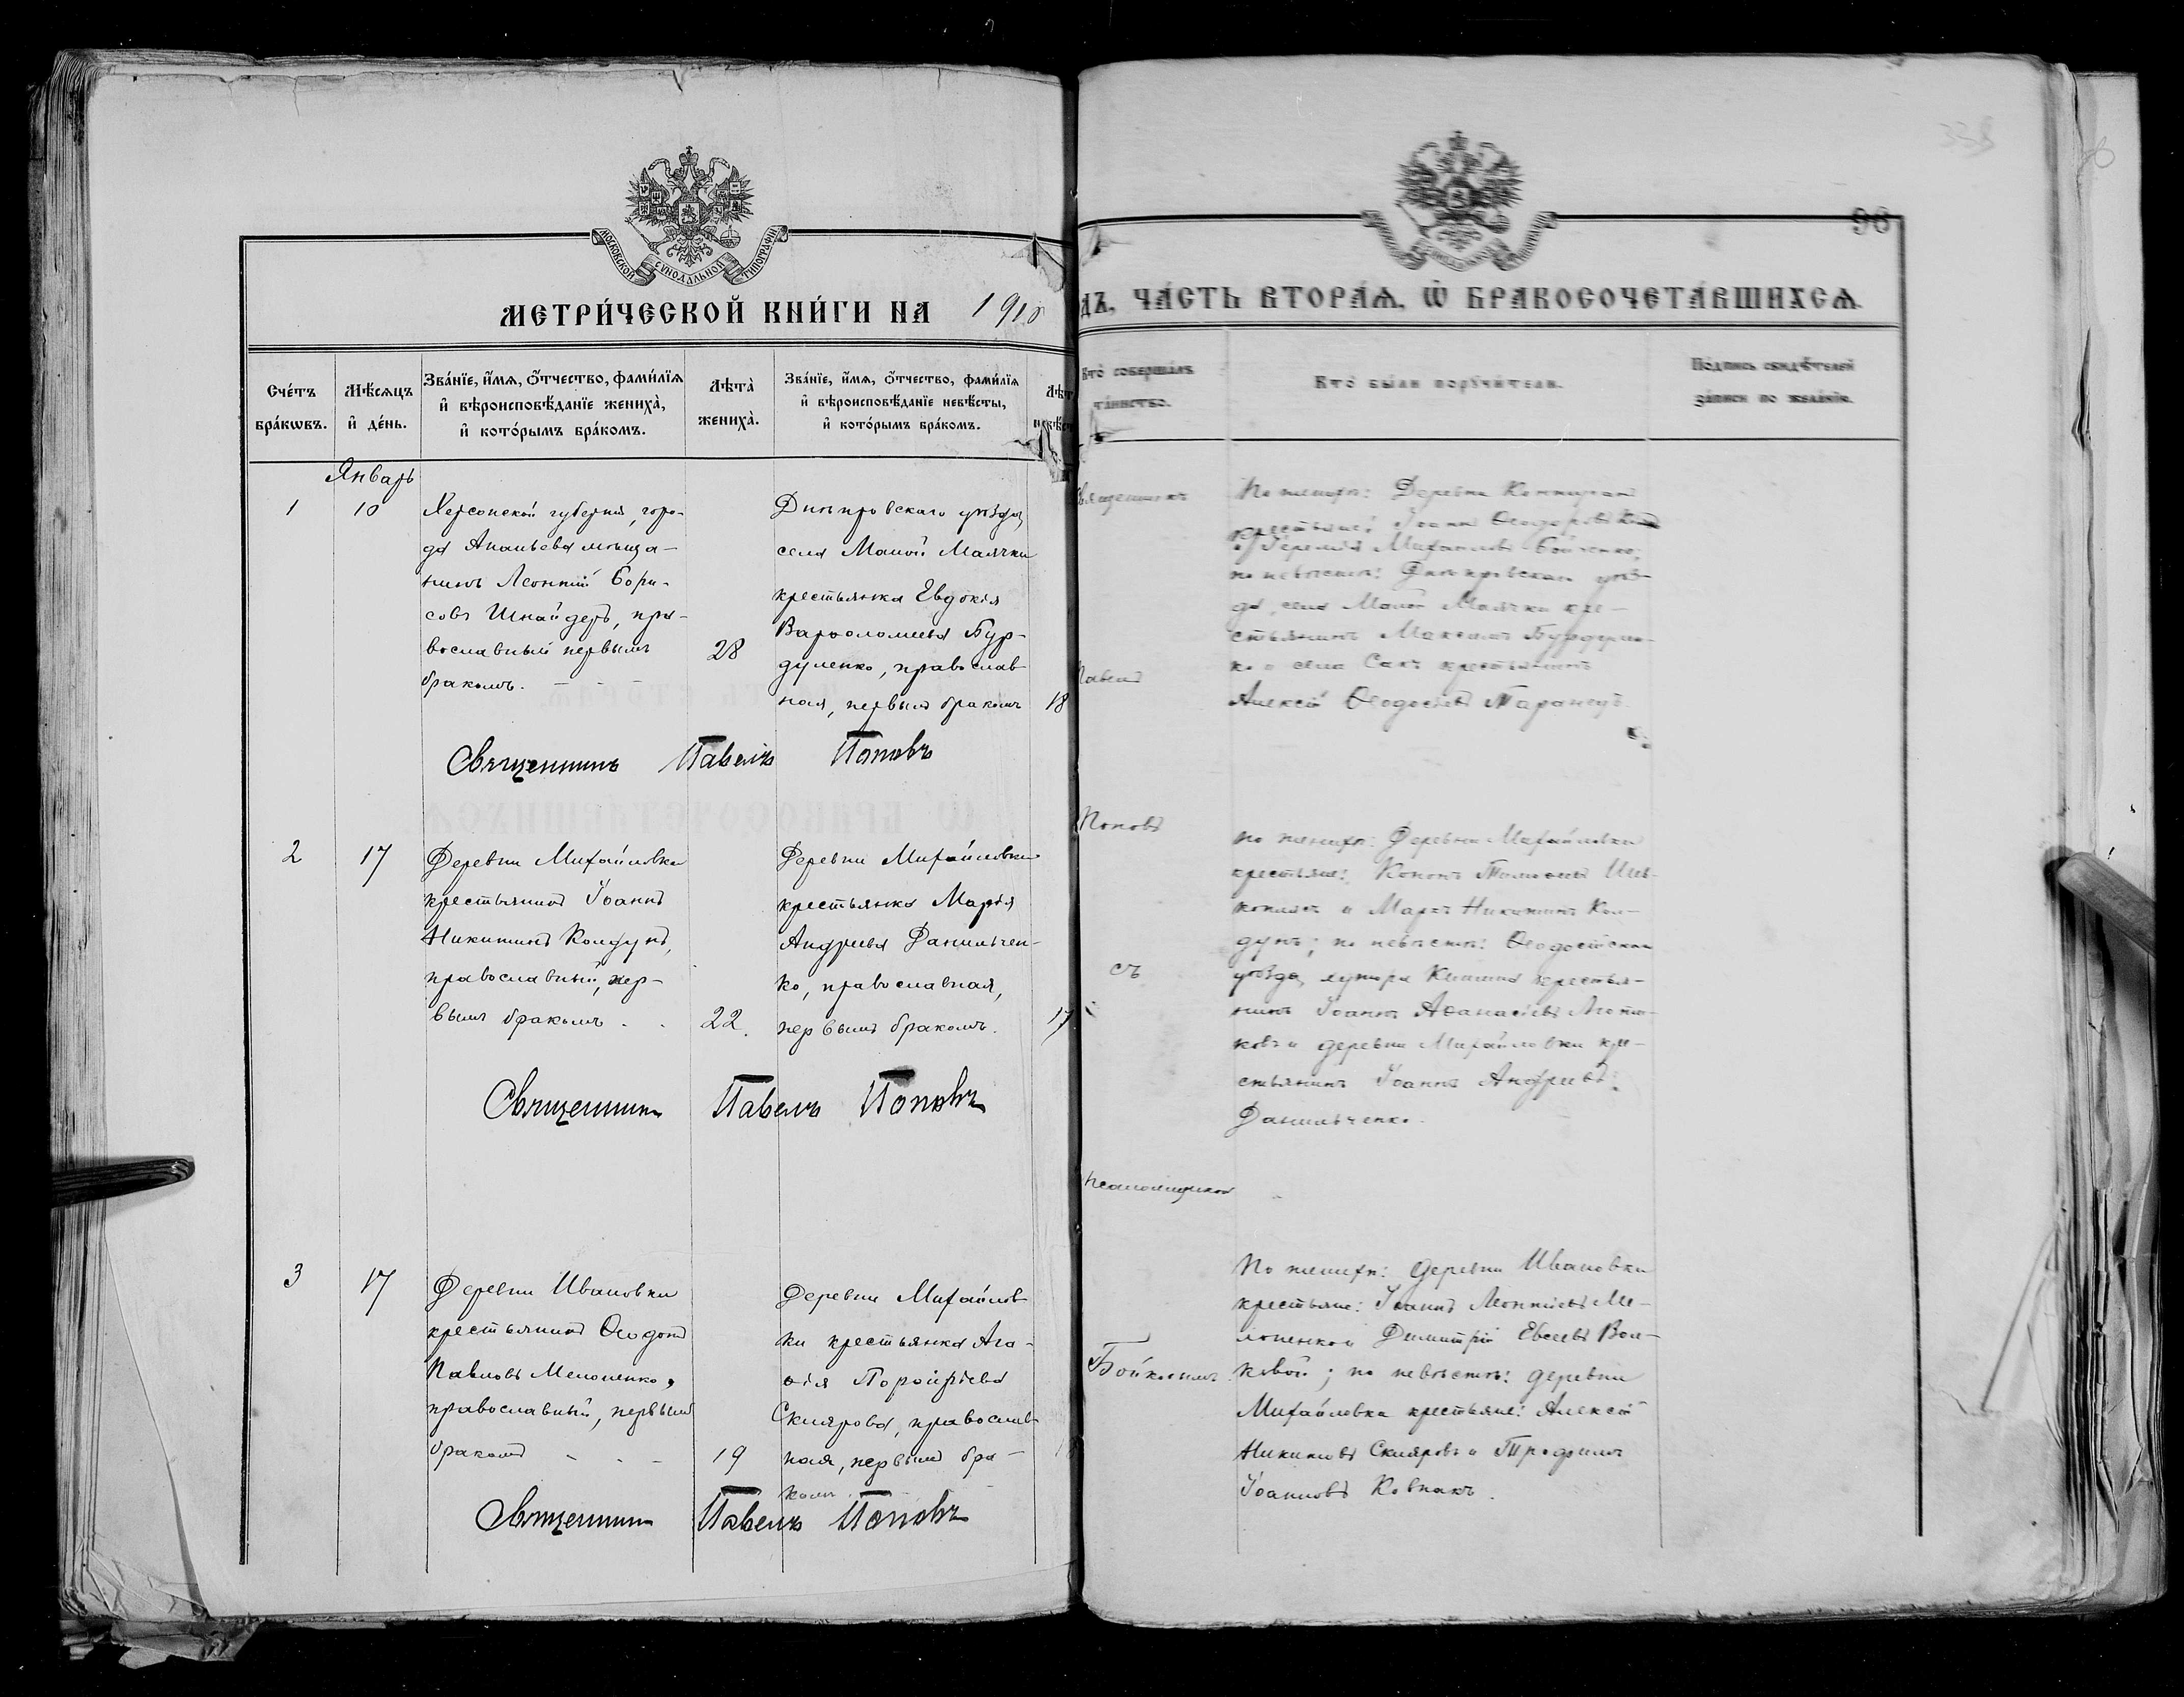 338
96
МОСКОВСКОЙ СѴНОДАЛЬНОЙ ТИПОГРАФІИ
МЕТРИ́ЧЕСКОЙ КНИ́ГИ НА 1910
ДЪ, ЧА́СТЬ ВТОРА́Ѧ, Ѡ҆ БРАКОСОЧЕТА́ВШИХСѦ.
Сче́тъ
бра́кѡвъ.
Мѣ́сѧцъ
и҆ де́нь.
Зва́нїе, и҆́мѧ, ѻ҆́тчество, фами́лїѧ
и҆ вѣроисповѣ́данїе жениха̀,
и҆ кото́рымъ бра́комъ.
Лѣта̀
жениха̀.
Зва́нїе, и҆́мѧ, ѻ҆́тчество, фами́лїѧ
и҆ вѣроисповѣ́данїе невѣ́сты,
и҆ кото́рымъ бра́комъ.
Кто̀ соверша́лъ
та́инство.
Кто̀ бы́ли порꙋчи́тели.
По́дпись свидѣ́телей
за́писи по жела́нїю.
Январь
1
10
Херсонской губерніи, горо-
да Ананьева мѣща-
нинъ Леонтій Бори-
совъ Шнайдеръ, пра-
вославный первымъ
бракомъ.
28
Днѣпровскаго уѣзда,
села Малой Маячки
крестьянка Евдокія
Варѳоломеева Бур-
дуленко, православ
ная, первымъ бракомъ
18
Священникъ Павелъ Поповъ
Священникъ
Павелъ
Поповъ
съ
псаломщикомъ
Бойковымъ
По женихѣ: Деревни
крестьяне: Іоаннъ Ѳеодоровъ
и Іеремія Михаиловъ Бойченко;
по невѣстѣ: Днѣпровскаго уѣз-
да, села Малой Маячки кре-
стьянинъ Максимъ
ко и села Сакъ крестьянинъ
Алексѣй Ѳеодосіевъ Таранецъ.
2
17
Деревни Михайловки
крестьянинъ Іоаннъ
Никитинъ Колдунъ,
православный, пер-
вымъ бракомъ
22.
Деревни Михайловки
крестьянка Марія
Андреева Данильчен-
ко, православная,
первымъ бракомъ.
17
Священникъ Павелъ Поповъ
по женихѣ: Деревни Михайловки
крестьяне: Кононъ Тимоѳеевъ Шев-
коплясъ и Маркъ Никитинъ Кол-
дунъ; по невѣстѣ: Ѳеодосійскаго
уѣзда, хутора крестья-
нинъ Іоаннъ Аѳанасіевъ
ковъ и деревни Михайловки кре-
стьянинъ Іоаннъ Андреевъ
Данильченко.
3
17
Деревни Ивановки
крестьянинъ Ѳеодотъ
Павловъ Мелопенко,
православный, первымъ
бракомъ
19
Деревни Михайлов
ки крестьянка Ага-
ѳія Порфиріева
Склярова, православ-
ная, первымъ бра-
комъ
Священникъ Павелъ Поповъ
По женихѣ: деревни Ивановки
крестьяне: Іоаннъ Леонтіевъ Ме-
лопенко и Димитрій Евсеевъ Вол-
ковой; по невѣстѣ: деревни
Михайловка крестьяне: Алексѣй
Никитовъ Скляровъ и Трофимъ
Іоанновъ Ковпакъ.